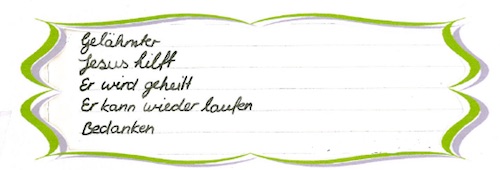 Gelähmter
Jesus hilft
Er wird geheilt
Er kann wieder laufen
Bedanken